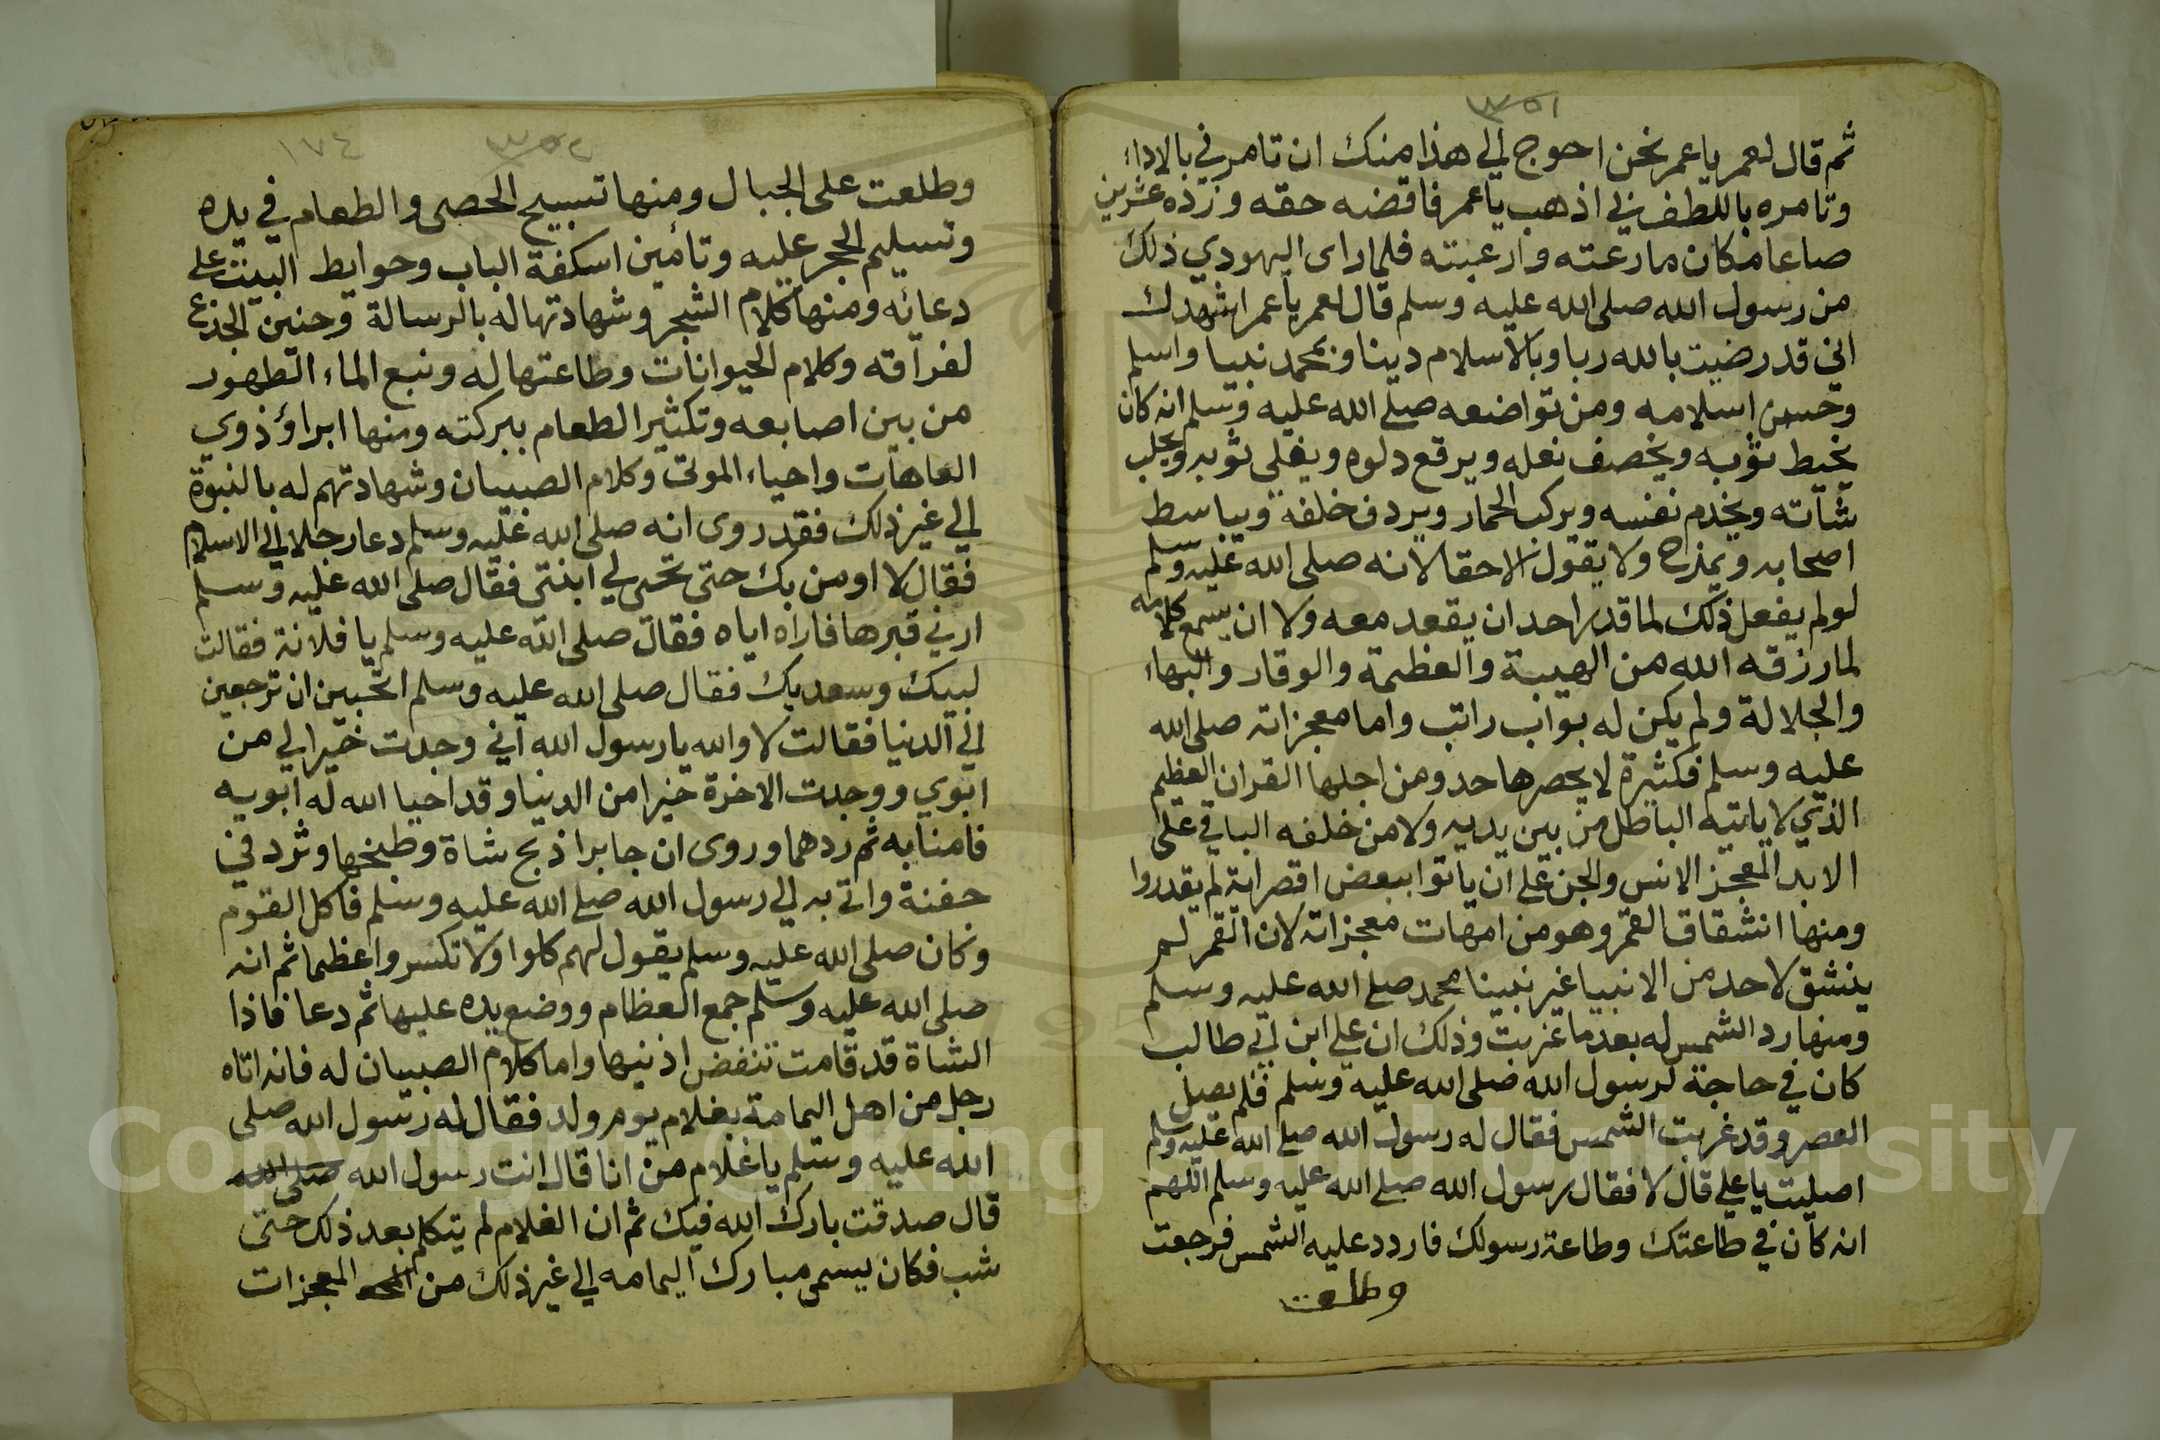 ٣٥١
ثم قال لعمر يا عمر نحن احوج الي هذا منك ان تامرني بالاداء
وتامره باللطف بي اذهب يا عمر فاقضه حقه وزده عشرين
صاعا مكان ما رعته وارعبته فلما راى اليهودي ذلك
من رسول الله صلى الله عليه وسلم قال لعمر يا عمر اشهدك
اني قد رضيت بالله ربا وبالاسلام دينا وبمحمد نبيا واسلم
وحسن اسلامه ومن تواضعه صلى الله عليه وسلم انه كان
يخيط ثوبه ويخصف نعله ويرقع دلوه ويفلي ثوبه ويحلب
شاته ويخدم نفسه ويركب الحمار ويردف خلفه ويباسط
اصحابه ويمزح ولا يقول الا حقا لانه صلى الله عليه وسلم
لو لم يفعل ذلك لما قدر احد ان يقعد معه ولا ان يسمع كلامه
لما رزقه الله من الهيبة والعظمة والوقار والبهاء
والجلالة ولم يكن له بواب راتب واما معجزاته صلى الله
عليه وسلم فكثيرة لا يحصرها حد ومن اجلها القران العظيم
الذي لا ياتيه الباطل من بين يديه ولا من خلفه الباقي على
الابد المعجز الانس والجن على ان ياتوا ببعض اقصر اية لم يقدروا
ومنها انشقاق القمر وهو من امهات معجزاته لان القمر لم
ينشق لاحد من الانبيا غير نبينا محمد صلى الله عليه وسلم
ومنها رد الشمس له بعد ما غربت وذلك ان علي ابن ابي طالب
كان في حاجة لرسول الله صلى الله عليه وسلم فلم يصل
العصر وقد غربت الشمس فقال له رسول الله صلى الله عليه وسلم
اصليت يا علي قال لا فقال رسول الله صلى الله عليه وسلم اللهم
انه كان في طاعتك وطاعة رسولك فاردد عليه الشمس فرجعت
وطلعت
٣٥٢
١٧٤
وطلعت على الجبال ومنها تسبيح الحصى والطعام في يده
وتسليم الحجر عليه وتأمين اسكفة الباب وحوايط البيت على
دعائه ومنها كلام الشجر وشهادتها له بالرسالة وحنين الجذع
لفراقه وكلام الحيوانات وطاعتها له ونبع الماء الطهور
من بين اصابعه وتكثير الطعام ببركته ومنها ابراؤ ذوي
العاهات واحياء الموتى وكلام الصبيان وشهادتهم له بالنبوة
الي غير ذلك فقد روى انه صلى الله عليه وسلم دعا رجلا الي الاسلام
فقال لا اومن بك حتى تحيي لي ابنتي فقال صلى الله عليه وسلم
ارني قبرها فاراه اياه فقال صلى الله عليه وسلم يا فلانة فقالت
لبيك وسعديك فقال صلى الله عليه وسلم اتحبين ان ترجعين
الي الدنيا فقالت لا والله يا رسول الله اني وجدت خيرا لي من
ابوي ووجدت الاخرة خيرا من الدنيا وقد احيا الله له ابويه
فامنا به ثم ردهما وروى ان جابرا ذبح شاة وطبخها وثرد في
جفنة واتى به الي رسول الله صلى الله عليه وسلم فاكل القوم
وكان صلى الله عليه وسلم يقول لهم كلوا ولا تكسروا عظما ثم انه
صلى الله عليه وسلم جمع العظام ووضع يده عليها ثم دعا فاذا
الشاة قد قامت تنفض اذنيها واما كلام الصبيان له فانه اتاه
رجل من اهل اليمامة بغلام يوم ولد فقال له رسول الله صلى
الله عليه وسلم يا غلام من انا قال انت رسول الله صلى الله
قال صدقت بارك الله فيك ثم ان الغلام لم يتكلم بعد ذلك حتى
شب فكان يسمى مبارك اليمامه الي غير ذلك من المعجزات